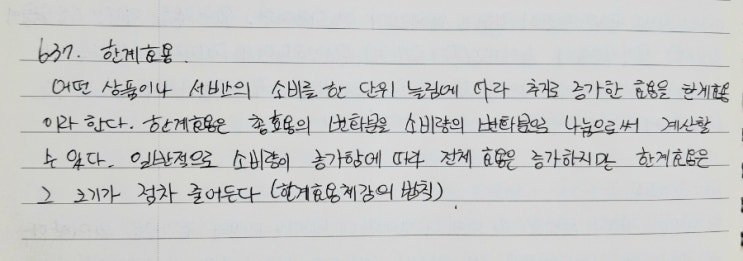 637. 한계효용.
어떤 상품이나 서비스의 소비를 한 단위 늘림에 따라 추가로 증가한 효용을 한계효용
이라 한다. 한계효용은 총효용의 변화분을 소비량의 변화분으로 나눔으로써 계산할
수 있다. 일반적으로 소비량이 증가함에 따라 전체 효용은 증가하지만 한계효용은
그 크기가 점차 줄어든다 (한계효용체감의 법칙).